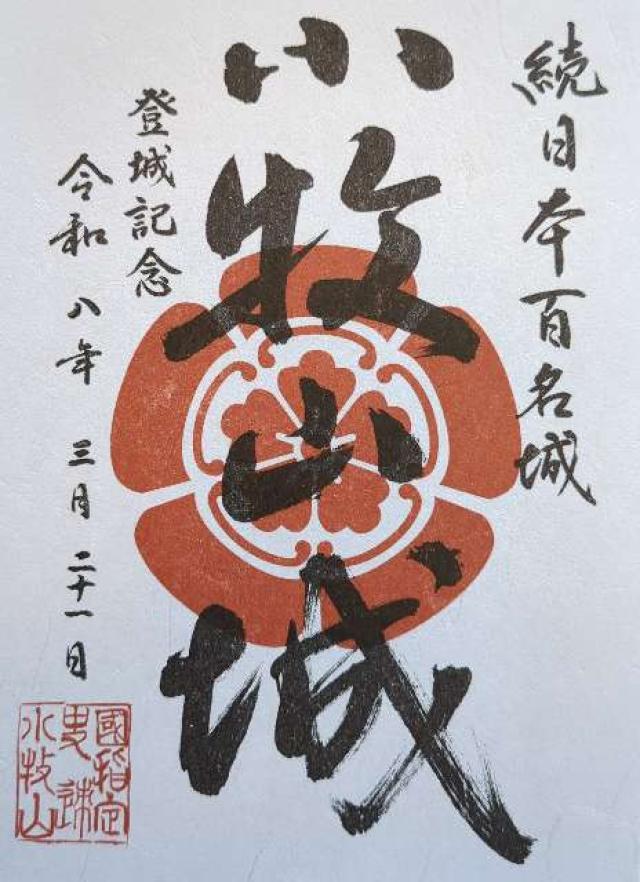 続日本百名城
小牧山城
登城記念
令和八年 三月 二十一日
國指定
史跡
小牧山